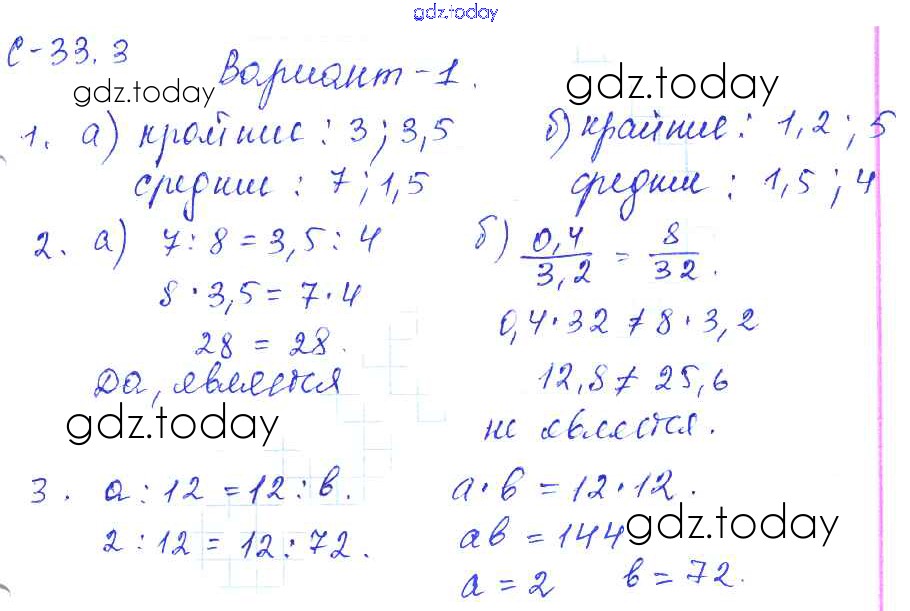 gdz.today
С-33.3
Вариант-1.
gdz.today
gdz.today
1. а) крайние : 3 ; 3,5
средние : 7 ; 1,5
б) крайние : 1,2 ; 5
средние : 1,5 ; 4
2. а) 7 : 8 = 3,5 : 4
8 · 3,5 = 7 · 4
28 = 28.
Да, является
gdz.today
б) 0,4/3,2 = 8/32.
0,4 · 32 ≠ 8 · 3,2
12,8 ≠ 25,6
не является.
3. а : 12 = 12 : в.
2 : 12 = 12 : 72.
а · в = 12 · 12.
ав = 144
gdz.today
а = 2 в = 72.